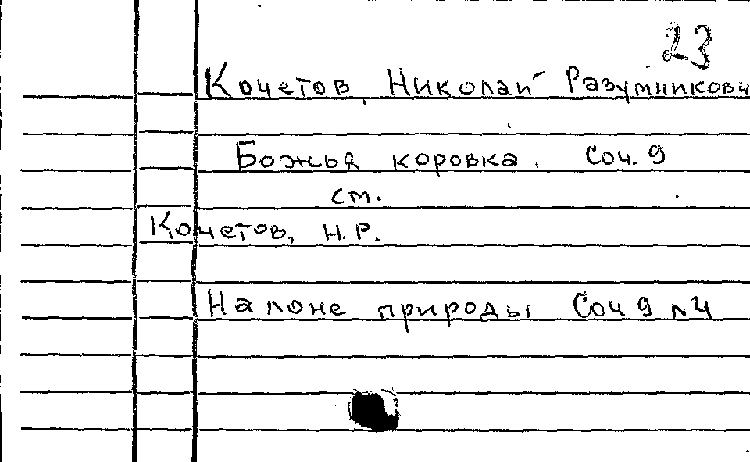 23
Кочетов, Николай Разумникович
Божья коровка. Соч. 9
см.
Кочетов, Н.Р.
На лоне природы Соч 9 №4